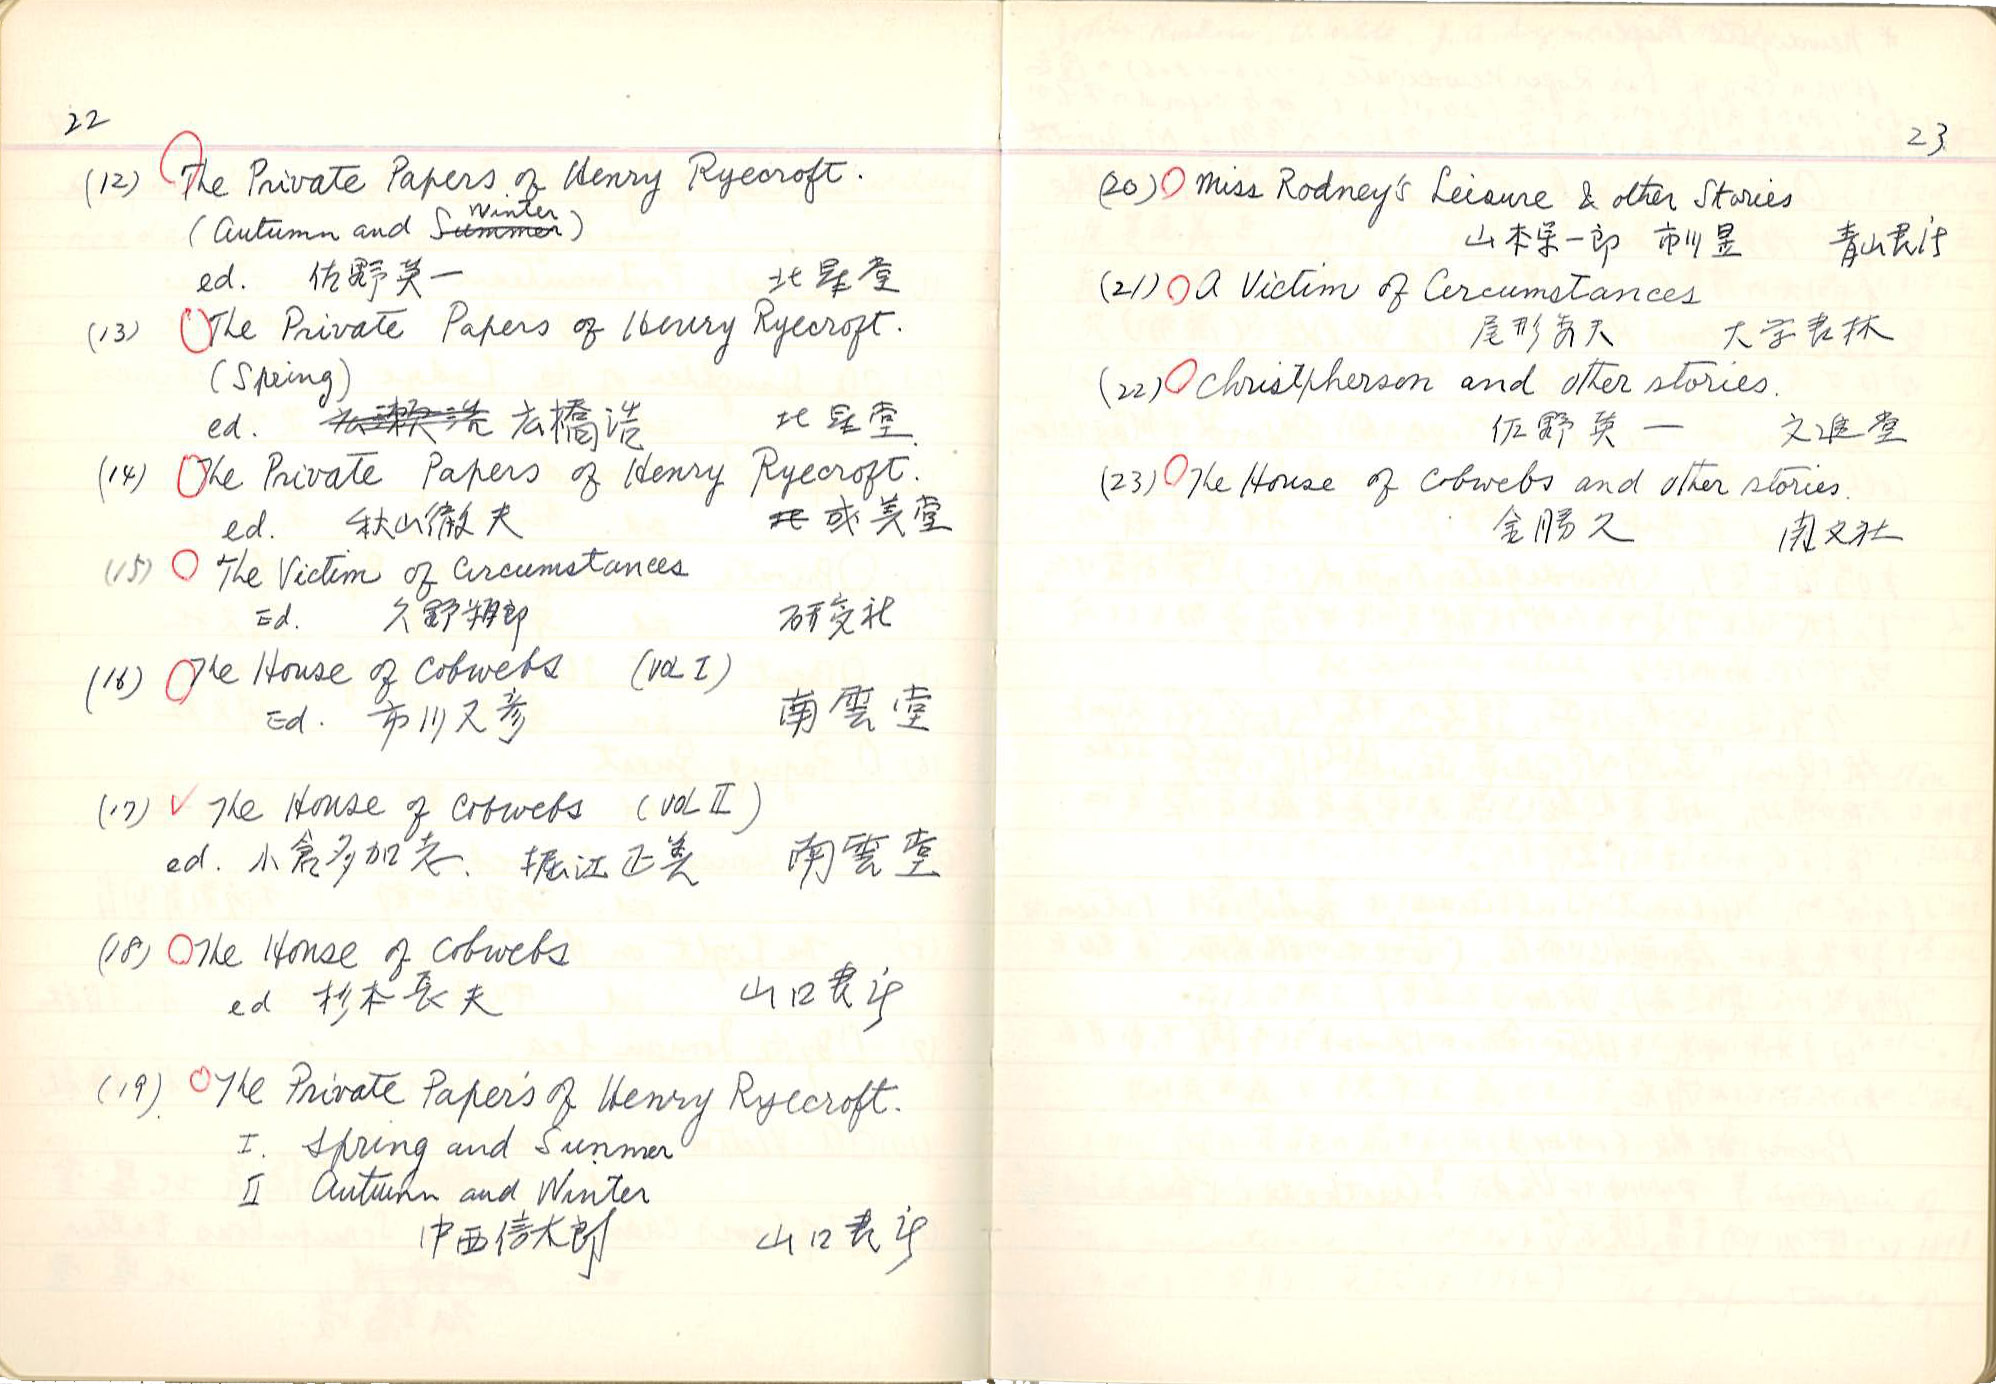 22
(12) The Private Papers of Henry Ryecroft.
(Autumn and Summer Winter)
ed. 佐野英一 北星堂
(13) The Private Papers of Henry Ryecroft.
(Spring)
ed. 広瀬浩 広橋浩 北星堂
(14) The Private Papers of Henry Ryecroft.
ed. 秋山徹夫 北 成美堂
(15) The Victim of Circumstances
Ed. 久野朔郎 研究社
(16) The House of Cobwebs (Vol I)
Ed. 市川又彦 南雲堂
(17) ✓ The House of Cobwebs (Vol II)
ed. 小倉多加志. 堀江正美 南雲堂
(18) The House of Cobwebs
ed 杉本長夫 山口書店
(19) The Private Papers of Henry Ryecroft.
I. Spring and Summer
II Autumn and Winter
中西信太郎 山口書店
23
(20) Miss Rodney's Leisure & other Stories
山本栄一郎 市川昱 青山書店
(21) A Victim of Circumstances
尾形 大学書林
(22) Christpherson and other stories.
佐野英一 文進堂
(23) The House of Cobwebs and other stories.
金勝久